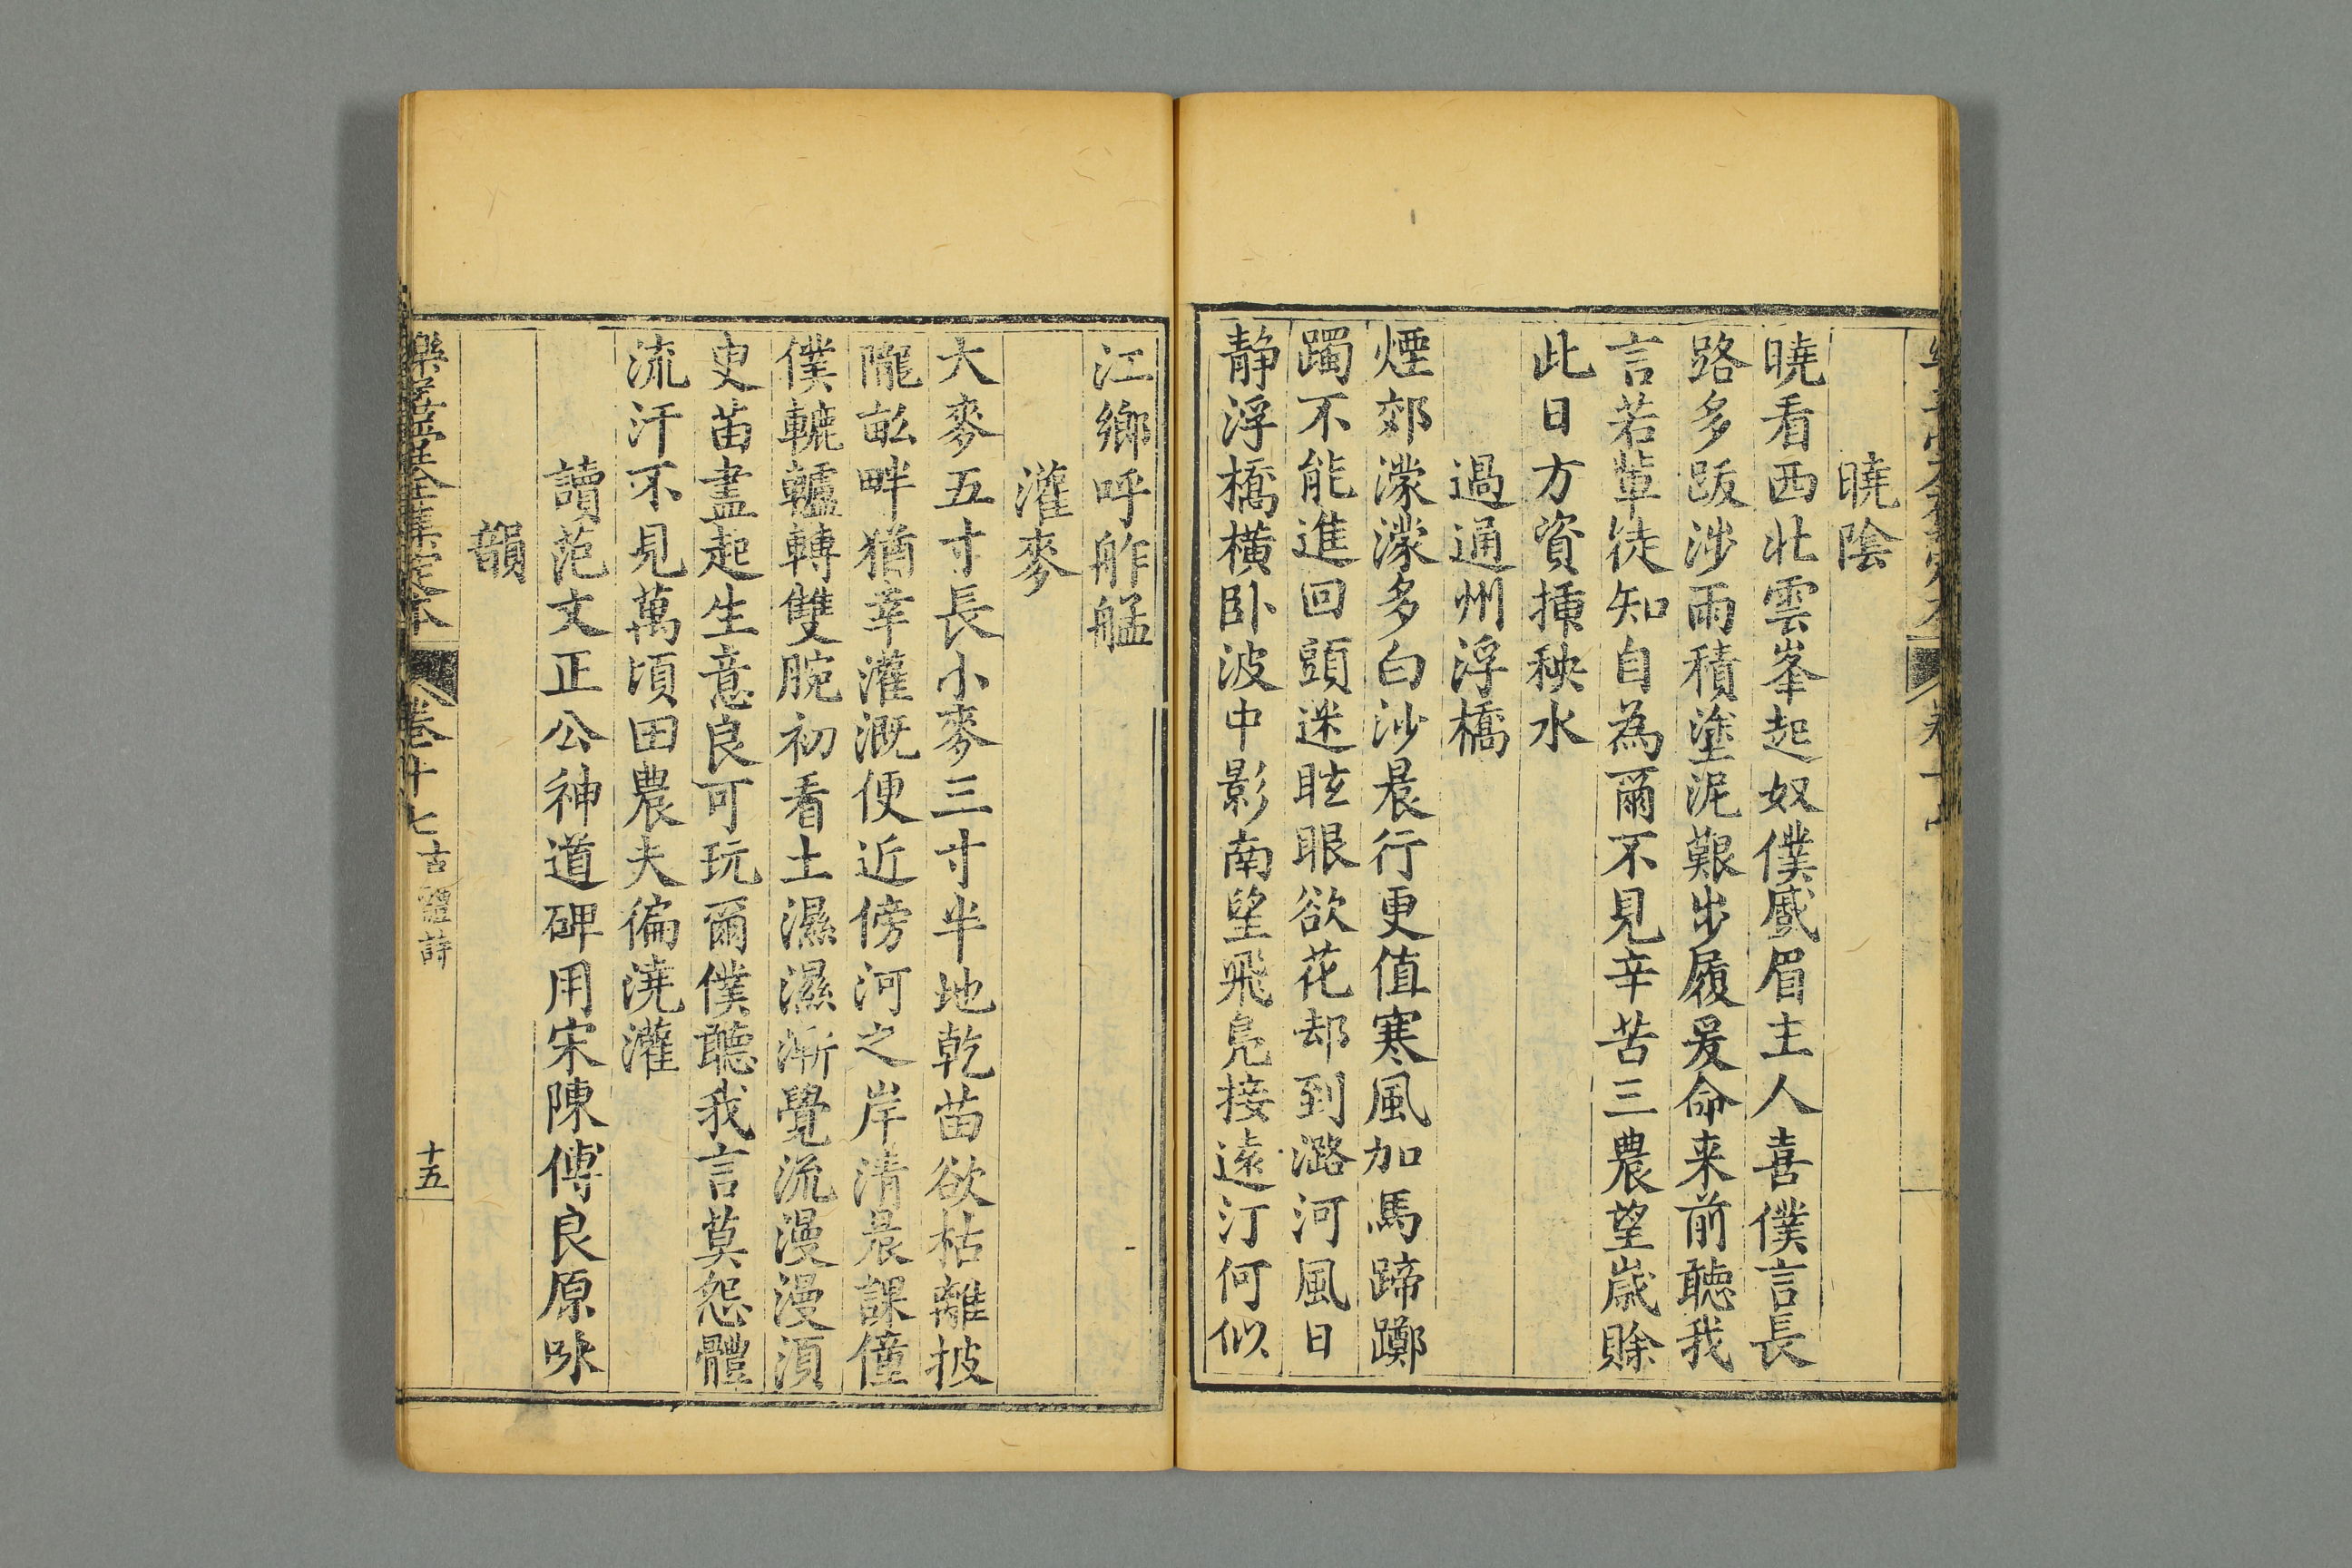 曉陰
曉看西北雲峯起奴僕慼眉主人喜僕言長
路多跋涉雨積塗泥艱步履爰命来前聽我
言若輩徒知自為爾不見辛苦三農望歲賒
此日方資揷秧水
過通州浮橋
煙郊濛濛多白沙晨行更值寒風加馬蹄躑
躅不能進回頭迷眩眼欲花却到潞河風日
静浮橋橫卧波中影南望飛鳧接遠汀何似
江鄉呼舴艋
灌麥
大麥五寸長小麥三寸半地乾苗欲枯離披
隴畝畔猶幸灌溉便近傍河之岸清晨課僮
僕轆轤轉雙腕初看土濕濕漸覺流漫漫須
臾苗盡起生意良可玩爾僕聽我言莫怨體
流汗不見萬頃田農夫徧澆灌
讀范文正公神道碑用宋陳傅良原咏
韻
樂善堂全集定本 卷十七 古體詩 十五